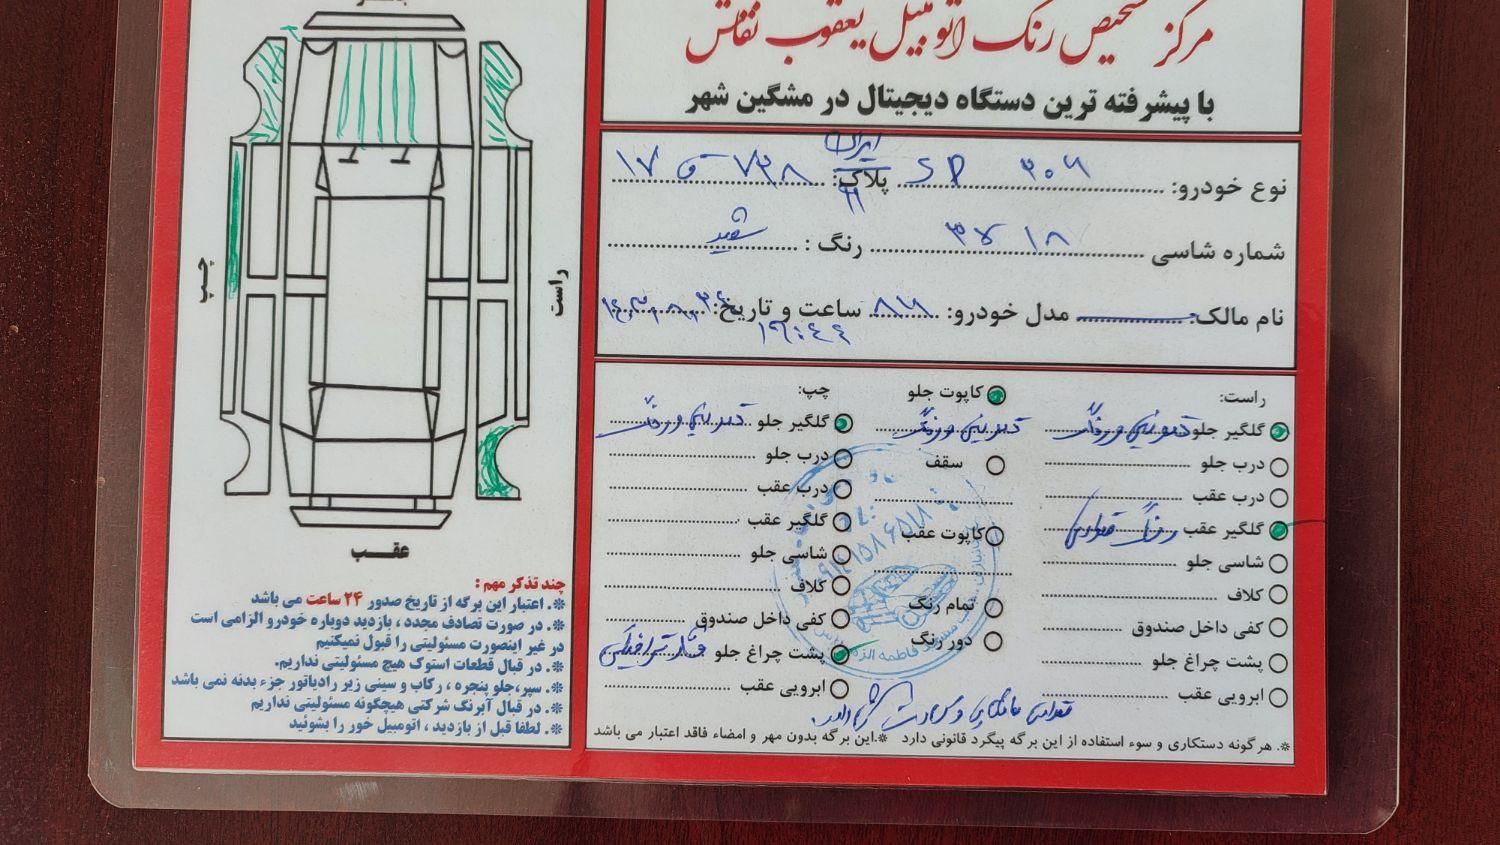 مرکز تشخیص رنگ اتومبیل یعقوب نقاش
با پیشرفته ترین دستگاه دیجیتال در مشگین شهر
نوع خودرو: ۲۰۶ SD پلاک: ۷۳۸ ق ۱۷ ایران
شماره شاسی ۳۷۱۸ رنگ : سفید
نام مالک: مدل خودرو: ۸۷ ساعت و تاریخ:
۱۹:۴۴
راست:
گلگیر جلو تعویض و رنگ
درب جلو
درب عقب
گلگیر عقب رنگ
شاسی جلو
کلاف
کفی داخل صندوق
پشت چراغ جلو
ابرویی عقب
کاپوت جلو
تعویض و رنگ
سقف
کاپوت عقب
تمام رنگ
دور رنگ
چپ:
گلگیر جلو تعویض و رنگ
درب جلو
درب عقب
گلگیر عقب
شاسی جلو
کلاف
کفی داخل صندوق
پشت چراغ جلو
ابرویی عقب
※. هرگونه دستکاری و سوء استفاده از این برگه پیگرد قانونی دارد ※.این برگه بدون مهر و امضاء فاقد اعتبار می باشد
چپ
راست
عقب
چند تذکر مهم :
※. اعتبار این برگه از تاریخ صدور ۲۴ ساعت می باشد
※. در صورت تصادف مجدد ، بازدید دوباره خودرو الزامی است
در غیر اینصورت مسئولیتی را قبول نمیکنیم
※. در قبال قطعات استوک هیچ مسئولیتی نداریم.
※. سپر،جلو پنجره ، رکاب و سینی زیر رادیاتور جزء بدنه نمی باشد
※. در قبال آبرنگ شرکتی هیچگونه مسئولیتی نداریم
※. لطفا قبل از بازدید ، اتومبیل خور را بشوئید